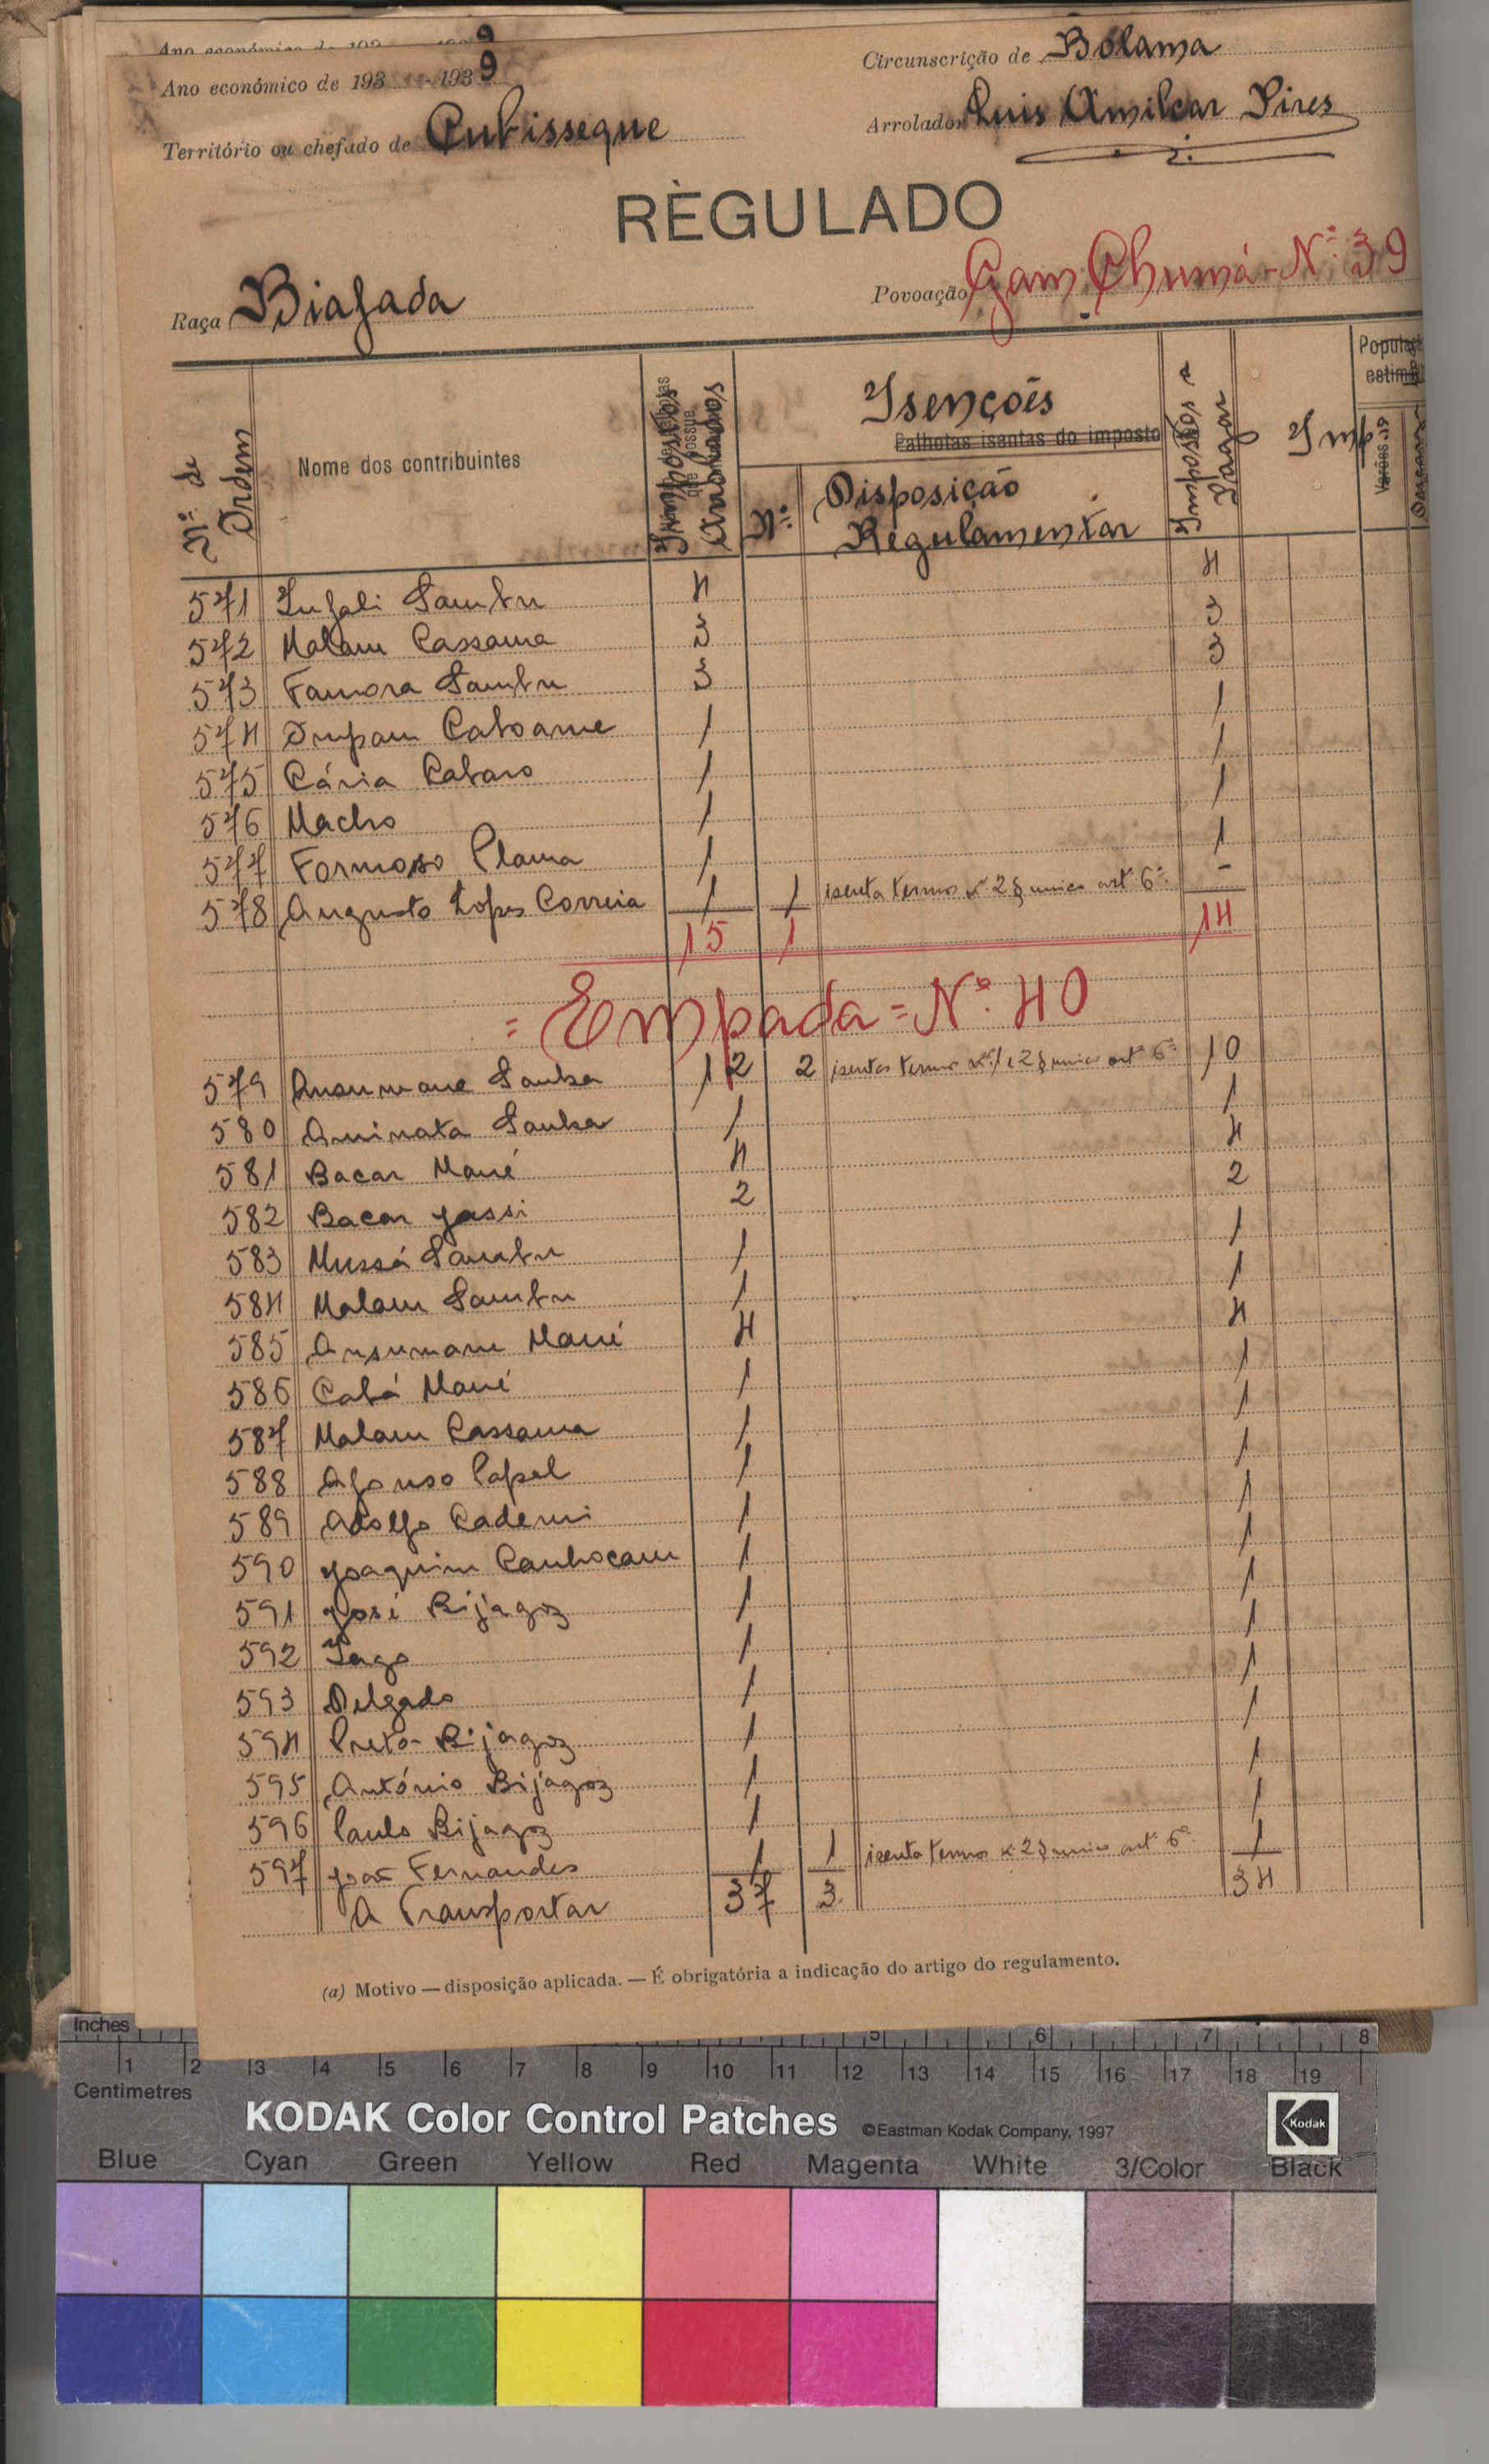 Ano económico de 193 - 1939
Circunscrição de Bolama
Território ou chefado de Cubisseque
Arrolador Luis Amilcar Pires
RÈGULADO
Raça Biafada
Povoação Gam Chumá - Nº 39
Nº de Ordem
Nome dos contribuintes
Impostos Arrolados
Isençoẽs
Palhotas isentas do imposto
Nº
Disposição Regulamentar
Impostos a Pagar
Imp
571 Infali Sambu 4 4
572 Malam Cassama 3 3
573 Famora Sambu 3 3
574 Caboame 1 1
575 Cária Cabaro 1 1
576 Macho 1 1
577 Formoso Plama 1 1
578 Augusto Lopes Correia 1 1 isenta termos nº 2 § unico artº 6º -
15 1 14
= Empada = Nº 40
579 Ansumane Sanha 12 2 isentas termos nº 1 e 2 § unico artº 6º 10
580 Aminata Sanha 1 1
581 Bacar Mané 4 4
582 Bacar Jassi 2 2
583 Mussá Sambu 1 1
584 Malam Sambu 1 1
585 Ansumane Mané 4 4
586 Cabá Mané 1 1
587 Malam Cassama 1 1
588 Afonso Papel 1 1
589 Adolfo Cademi 1 1
590 Joaquim Canhocam 1 1
591 José Bijagoz 1 1
592 Iago 1 1
593 Delgado 1 1
594 Preto - Bijagoz 1 1
595 António Bijagoz 1 1
596 Paulo Bijagoz 1 1
597 João Fernandes 1 1 isenta termos nº 2 § unico artº 6º 1
A Transportar 37 3 34
(a) Motivo — disposição aplicada. — É obrigatória a indicação do artigo do regulamento.
Inches 5 6 7 8
1 2 3 4 5 6 7 8 9 10 11 12 13 14 15 16 17 18 19
Centimetres
KODAK Color Control Patches ©Eastman Kodak Company, 1997 Kodak
Blue Cyan Green Yellow Red Magenta White 3/Color Black